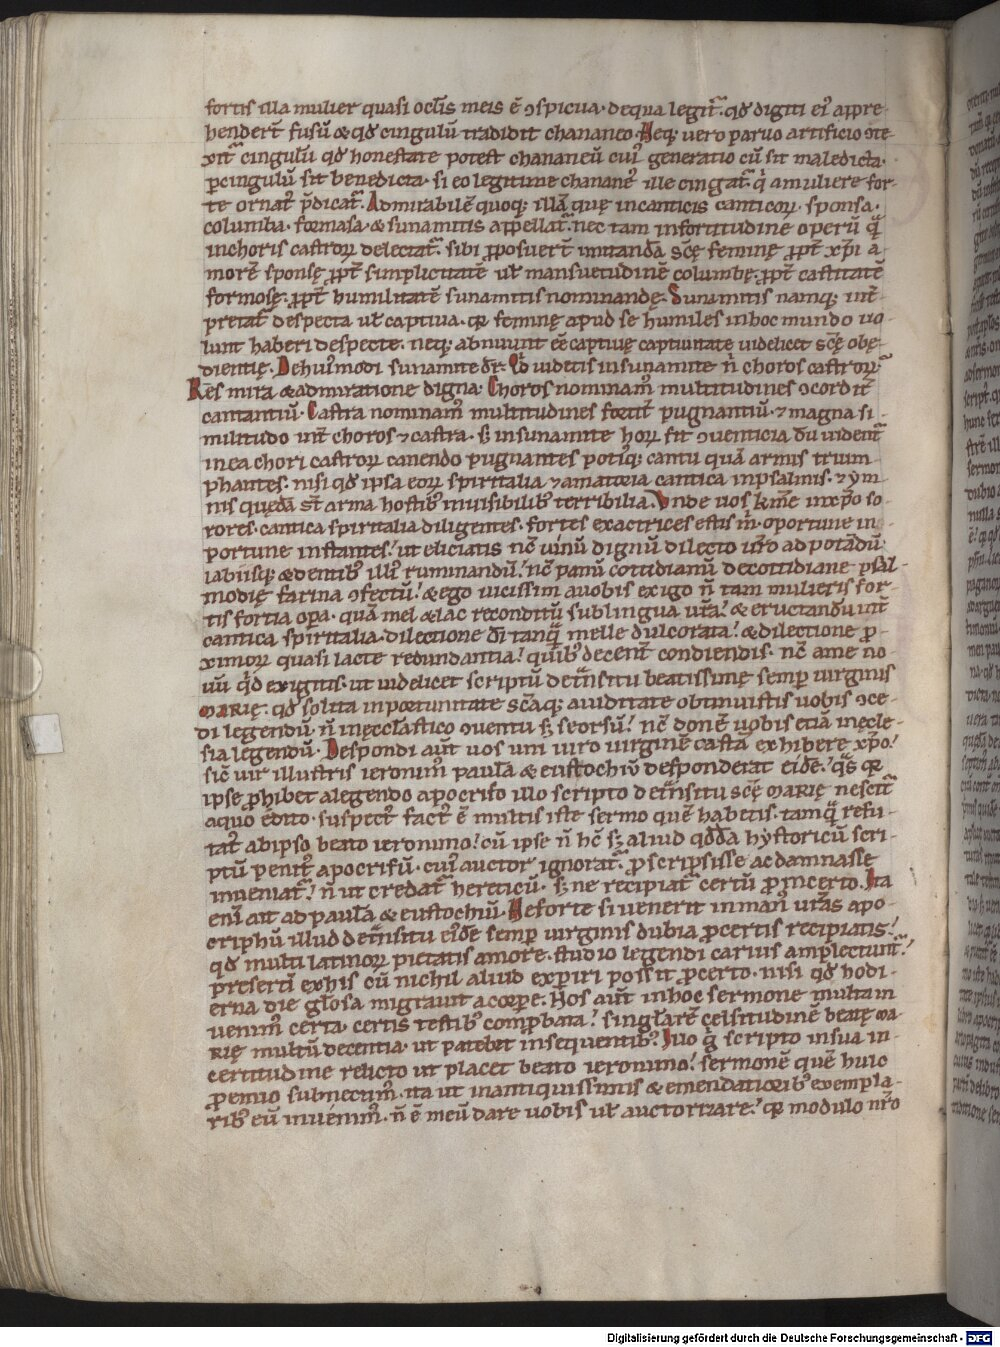 fortis illa mulier quasi oclis meis ē ꝯspicua. de qua legit̄. qđ digiti ei᾽ appre-
hendert̄ fusū & qđ cingulū tradidit chananeo. Neq; vero paruo artificio ꝯte-
xit̄ cingulū qđ honestare potest chananeū cui᾽ generatio cū sit maledicta.
ꝑ cingulū sit benedicta. si eo legitime chanane᾽ ille cingat̄. q̇ a muliere for-
te ornat᾽ p̄dicat̄. Admirabilē quoq; illā quę in canticis canticoꝝ. sponsa.
columba. formosa. & sunamitis appellat̄. nec tam in fortitudine operū q̄
in choris castroꝝ delectat̄. sibi ꝓposuert̄ imitandā scę̄ feminę ꝓpt̄ xp̄i a-
morē sponsę ꝓpt̄ simplicitatē ul̄ mansuetudinē columbę. ꝓpt̄ castitatē
formosę. ꝓpt̄ humilitatē sunamitis nominandę. Sunamitis namq; int̄-
pretat̄ despecta ul̄ captiua. qꝛ feminę apud se humiles in hoc mundo uo-
lunt haberi despecte. neq; abnuunt eē captiuę captiuitate videlicet scę̄ obę-
dientię. De hui᾽modi sunamite dr̄. Qđ videtis in sunamite n̄ choros castroꝝ.
Res mira & admiratione digna. Choros nominam᾽ multitudines ꝯcordit̄
cantantiū. Castra nominam᾽ multitudines fortit̄ pugnantiū. ⁊ magna si-
militudo int̄ choros ⁊ castra. sꝫ in sunamite hoꝝ fit ꝯuenticia dū uident̄
in ea chori castroꝝ canendo pugnantes poti᾽q; cantu quā armis trium-
phantes. nisi qđ ipsa eoꝝ spiritalia ⁊ amatoria cantica in psalmis. ⁊ ym-
nis quędā st̄ arma hostib᾽ inuisibilib᾽ terribilia. Vnde uos k̄me in xp̄o so-
rores. cantica spiritalia diligentes. fortes exactrices estis m̄. oportune in-
portune instantes. ut eliciatis nc̄ uinū dignū dilecto ur̄o ad potādū.
labiisq; & dentib᾽ illi᾽ ruminandū. nc̄ panū cottidianū de cottidiane psal-
modię farina ꝯfectū. & ego uicissim a uobis exigo n̄ tam mulieris for-
tis fortia oꝑa. quā mel & lac reconditū sub lingua ur̄a. & eructandū int̄
cantica spiritalia. dilectione dī tanq̄ melle dulcorata. & dilectione ꝓ-
ximoꝝ quasi lacte redundantia. quib᾽ decent̄ condiendis. nc̄ a me no-
uū qđ exigitis. ut videlicet scriptū de t̄nsitu beatissimę semꝑ uirginis
MARIĘ. qđ solita inportunitate scāq; auiditate obtinuistis uobis ꝯce-
di legendū. n̄ in ęcclastico ꝯuentu sꝫ seorsū. nc̄ donē uobis etiā in ęcle-
sia legendū. Despondi aut̄ uos uni uiro uirginē castā exhibere xp̄o.
sic̄ uir illustris ieronim᾽ paulā & eustochiū desponderat eidē. qs̄ qꝛ
ipse ꝓhibet a legendo apocrifo illo scripto de t̄nsitu scę̄ MARIĘ nescit̄
a quo edito. suspect᾽ fact᾽ ē multis iste sermo quē habetis. tamq̄ refu-
tat᾽ ab ipso beato ieronimo. cū ipse n̄ hc̄ sꝫ aliud qđdā hystoricū scri-
ptū penit᾽ apocrifū. cui᾽ auctor ignorat̄. ꝓscripsisse ac damnasse
inueniat̄. n̄ ut credat̄ hereticū. sꝫ ne recipiat̄ certū ꝓ incerto. Ita
enī ait ad paulā & eustochiū. Ne forte si venerit in man᾽ ur̄as apo-
criphū illud de t̄nsitu ei᾽dē semꝑ uirginis dubia ꝓ certis recipiatis.
qđ multi latinoꝝ pietatis amore. studio legendi carius amplectunt̄.
p̄sertī ex his cū nichil aliud experiri possit ꝓ certo. nisi qđ hodi-
erna die glōsa migrauit a corꝑe. Nos aut̄ in hoc sermone multa in-
uenim᾽ certa. certis testib᾽ comꝓbata. singlarē celsitudinē beatę MA-
RIĘ multū decentia. ut patebit in sequentib᾽. Illo g̊ scripto in sua in-
certitudine relicto ut placet beato ieronimo. sermonē quē huic
ꝓemio subnectim᾽. ita ut in antiquissimis & emendatiorib᾽ exempla-
rib᾽ eū inuenim᾽. n̄ ē meū dare uobis ul̄ auctorizare. qꝛ modulo nr̄o
Digitalisierung gefördert durch die Deutsche Forschungsgemeinschaft - DFG